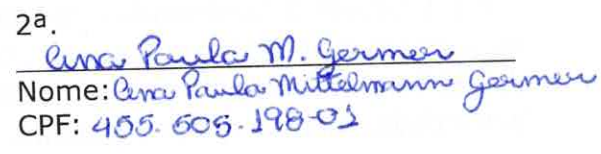 2ª.
Ana Paula M. Germer
Nome: Ana Paula Mittelmann Germer
CPF: 455.605.198-01